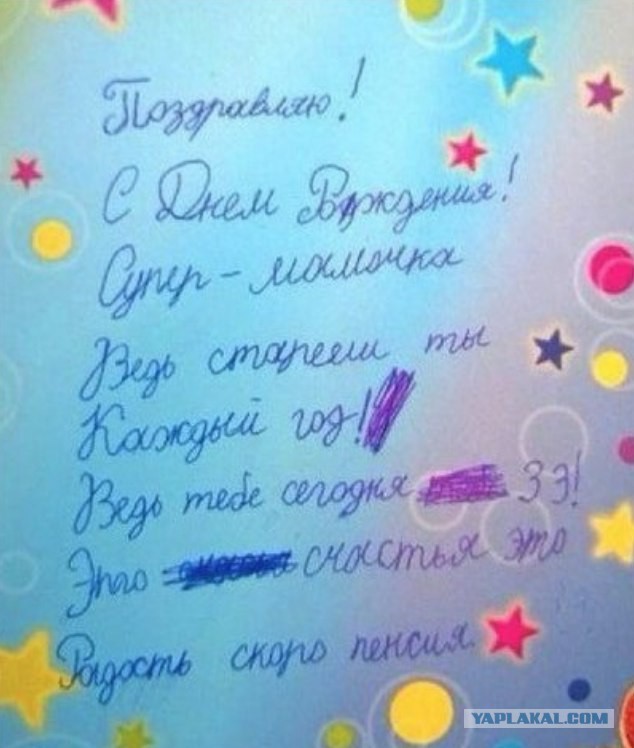 Поздравляю!
С Днем Рождения!
Супер-мамочка
Ведь стареешь ты
Каждый год!
Ведь тебе сегодня 33!
Это счастья это
Радость скоро пенсия.
YAPLAKAL.COM